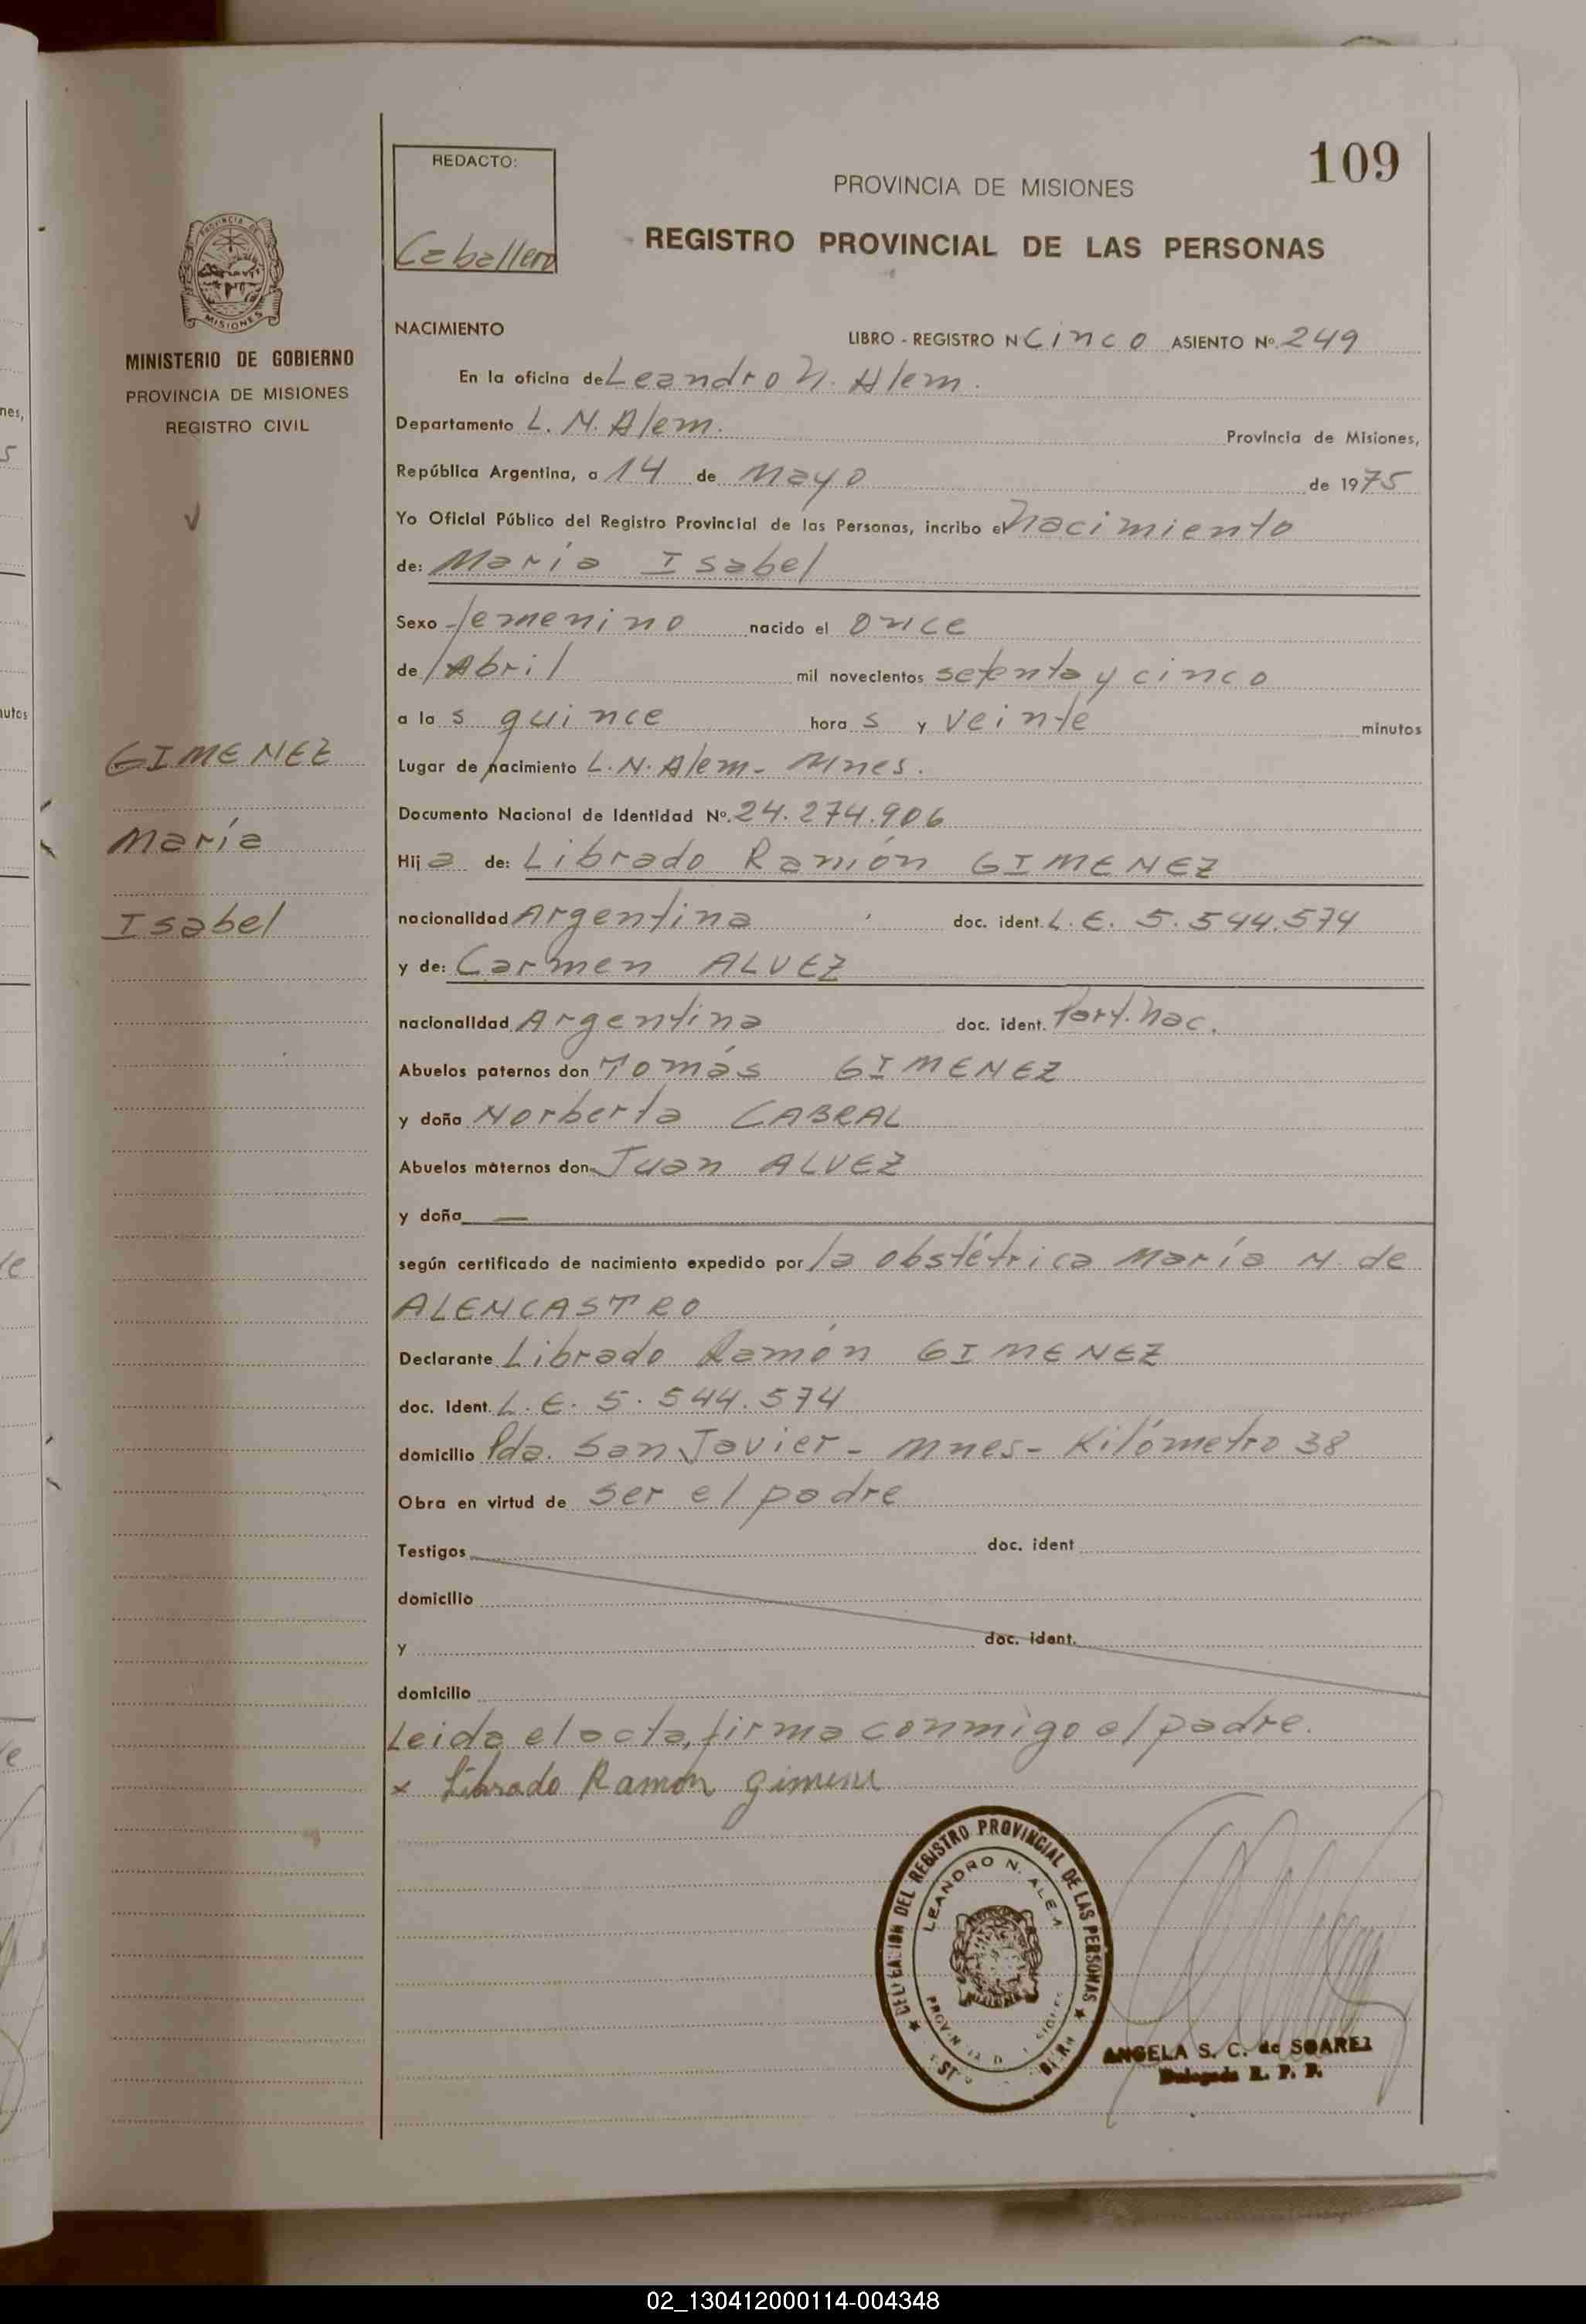 109
REDACTO:
Caballero
PROVINCIA DE MISIONES
REGISTRO PROVINCIAL DE LAS PERSONAS
PROVINCIA DE
MISIONES
MINISTERIO DE GOBIERNO
PROVINCIA DE MISIONES
REGISTRO CIVIL
GIMENEZ
María
Isabel
NACIMIENTO
LIBRO - REGISTRO N Cinco ASIENTO Nº. 249
En la oficina de Leandro N. Alem.
Departamento L. N. Alem. Provincia de Misiones,
República Argentina, a 14 de Mayo de 1975
Yo Oficial Público del Registro Provincial de las Personas, incribo el nacimiento
de: María Isabel
Sexo femenino nacido el once
de Abril mil novecientos setenta y cinco
a la s quince hora s y veinte minutos
Lugar de nacimiento L. N. Alem - Mnes.
Documento Nacional de Identidad Nº. 24.274.906
Hij a de: Librado Ramón GIMENEZ
nacionalidad Argentina doc. ident. L. E. 5.544.574
y de: Carmen ALVEZ
nacionalidad Argentina doc. ident. Part. Nac.
Abuelos paternos don Tomás GIMENEZ
y doña Norberta CABRAL
Abuelos maternos don Juan ALVEZ
y doña —
según certificado de nacimiento expedido por la obstétrica María N. de
ALENCASTRO
Declarante Librado Ramón GIMENEZ
doc. Ident. L. E. 5.544.574
domicilio Pda. San Javier - Mnes - Kilómetro 38
Obra en virtud de ser el padre
Testigos doc. ident
domicilio
y doc. ident.
domicilio
Leida el acta, firma conmigo el padre.
x Librado Ramón Gimene
DELEGACION DEL REGISTRO PROVINCIAL DE LAS PERSONAS
LEANDRO N. ALEM
ANGELA S. C. de SOAREZ
Delegada R. P. P.
02_130412000114-004348